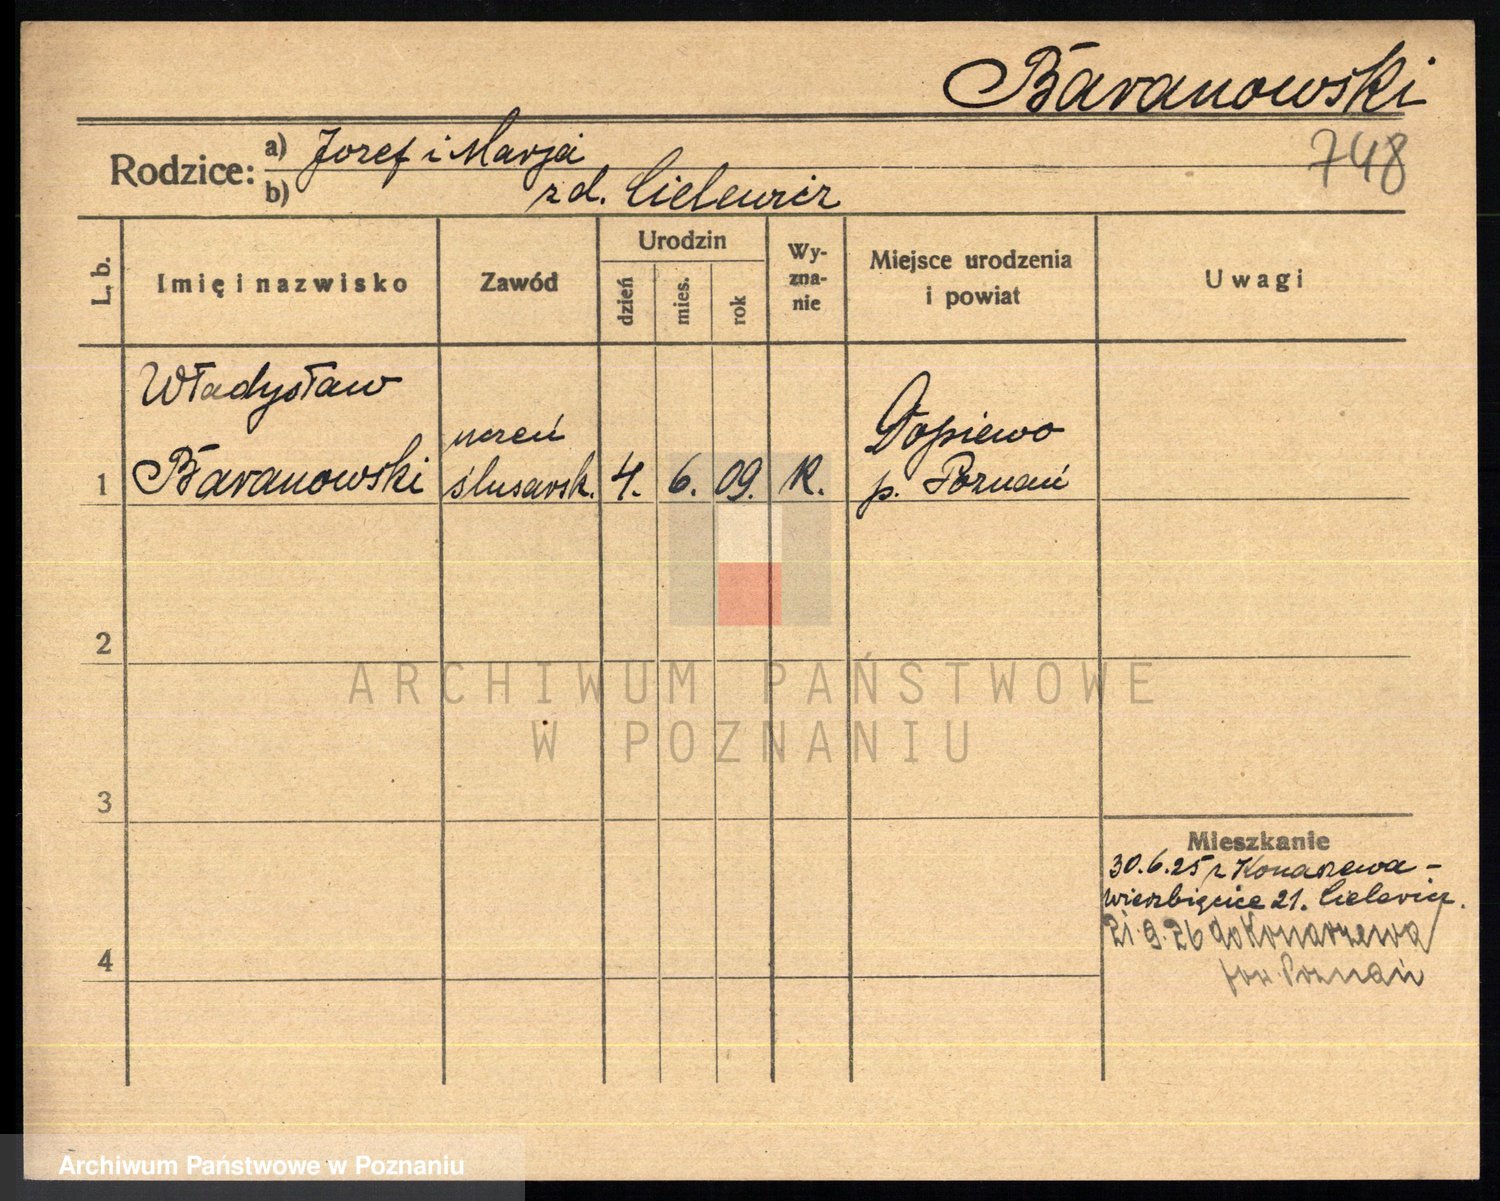 Baranowski
748
Rodzice: a) Jozef i Marja
b) zd. Cielewicz
L. b.
Imię i nazwisko
Zawód
Urodzin
dzień
mies.
rok
Wy-
zna-
nie
Miejsce urodzenia
i powiat
Uwagi
Władysław
Baranowski
uczeń
ślusarsk.
4. 6. 09. K.
Dopiewo
p. Poznań
1
2
3
4
ARCHIWUM PAŃSTWOWE
W POZNANIU
Mieszkanie
30.6.25 z Konarzewa –
Wierzbięcice 21. Cielewicz.
21.9.26 do Konarzewa
pow. Poznań
Archiwum Państwowe w Poznaniu